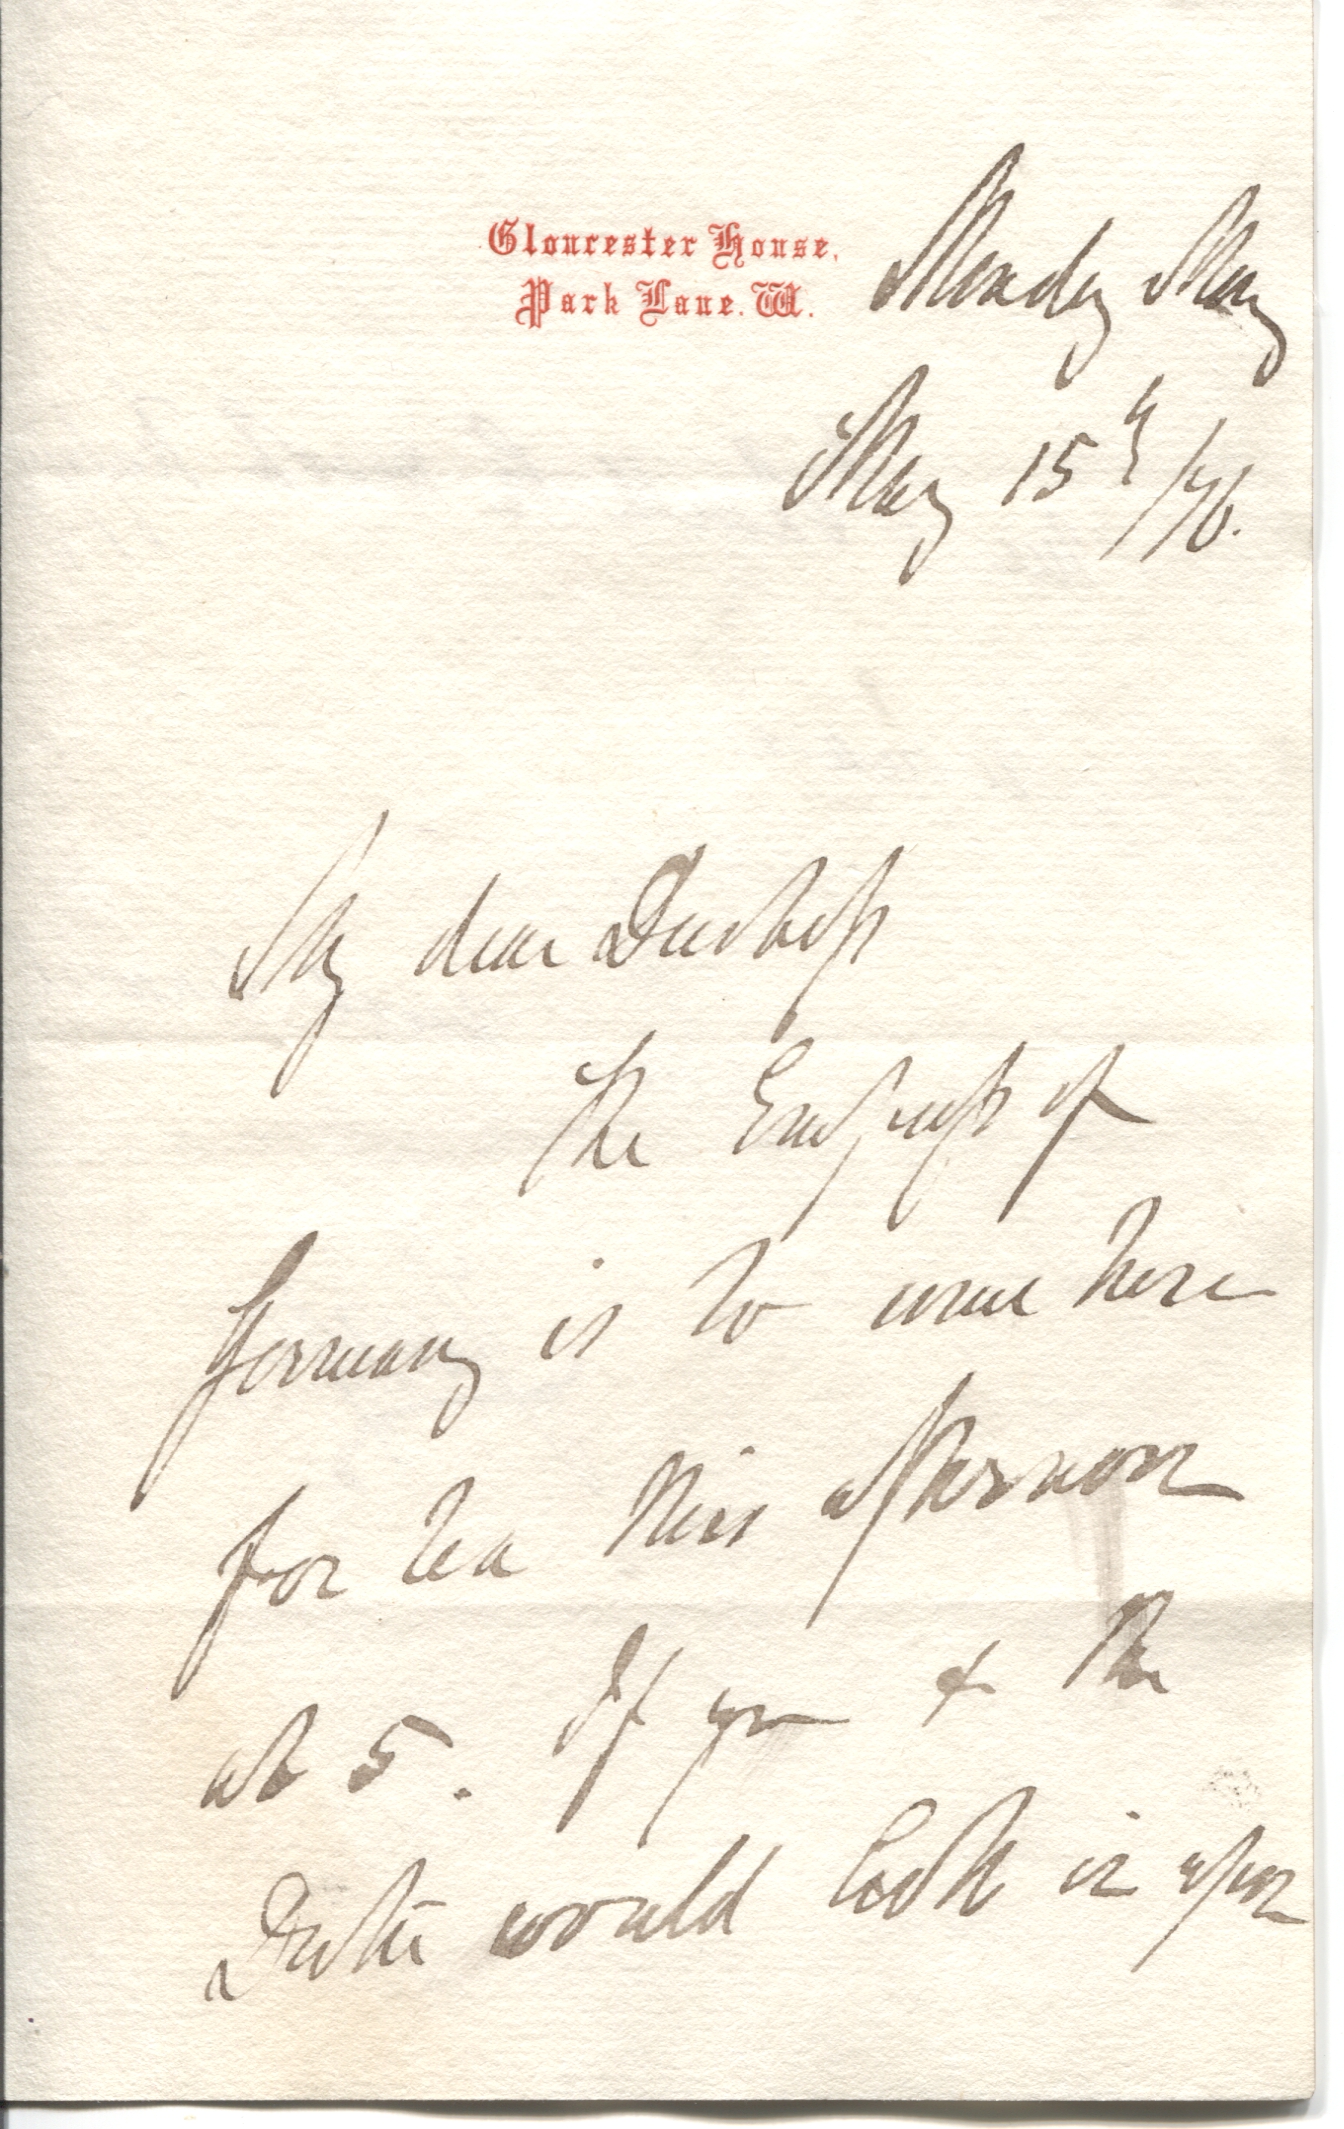 Gloucester House,
Park Lane. W.
Monday May
May 15th/76.
My dear Duchess
The Empress of
Germany is to come here
for tea this afternoon
at 5. If you & the
Duke would look in upon